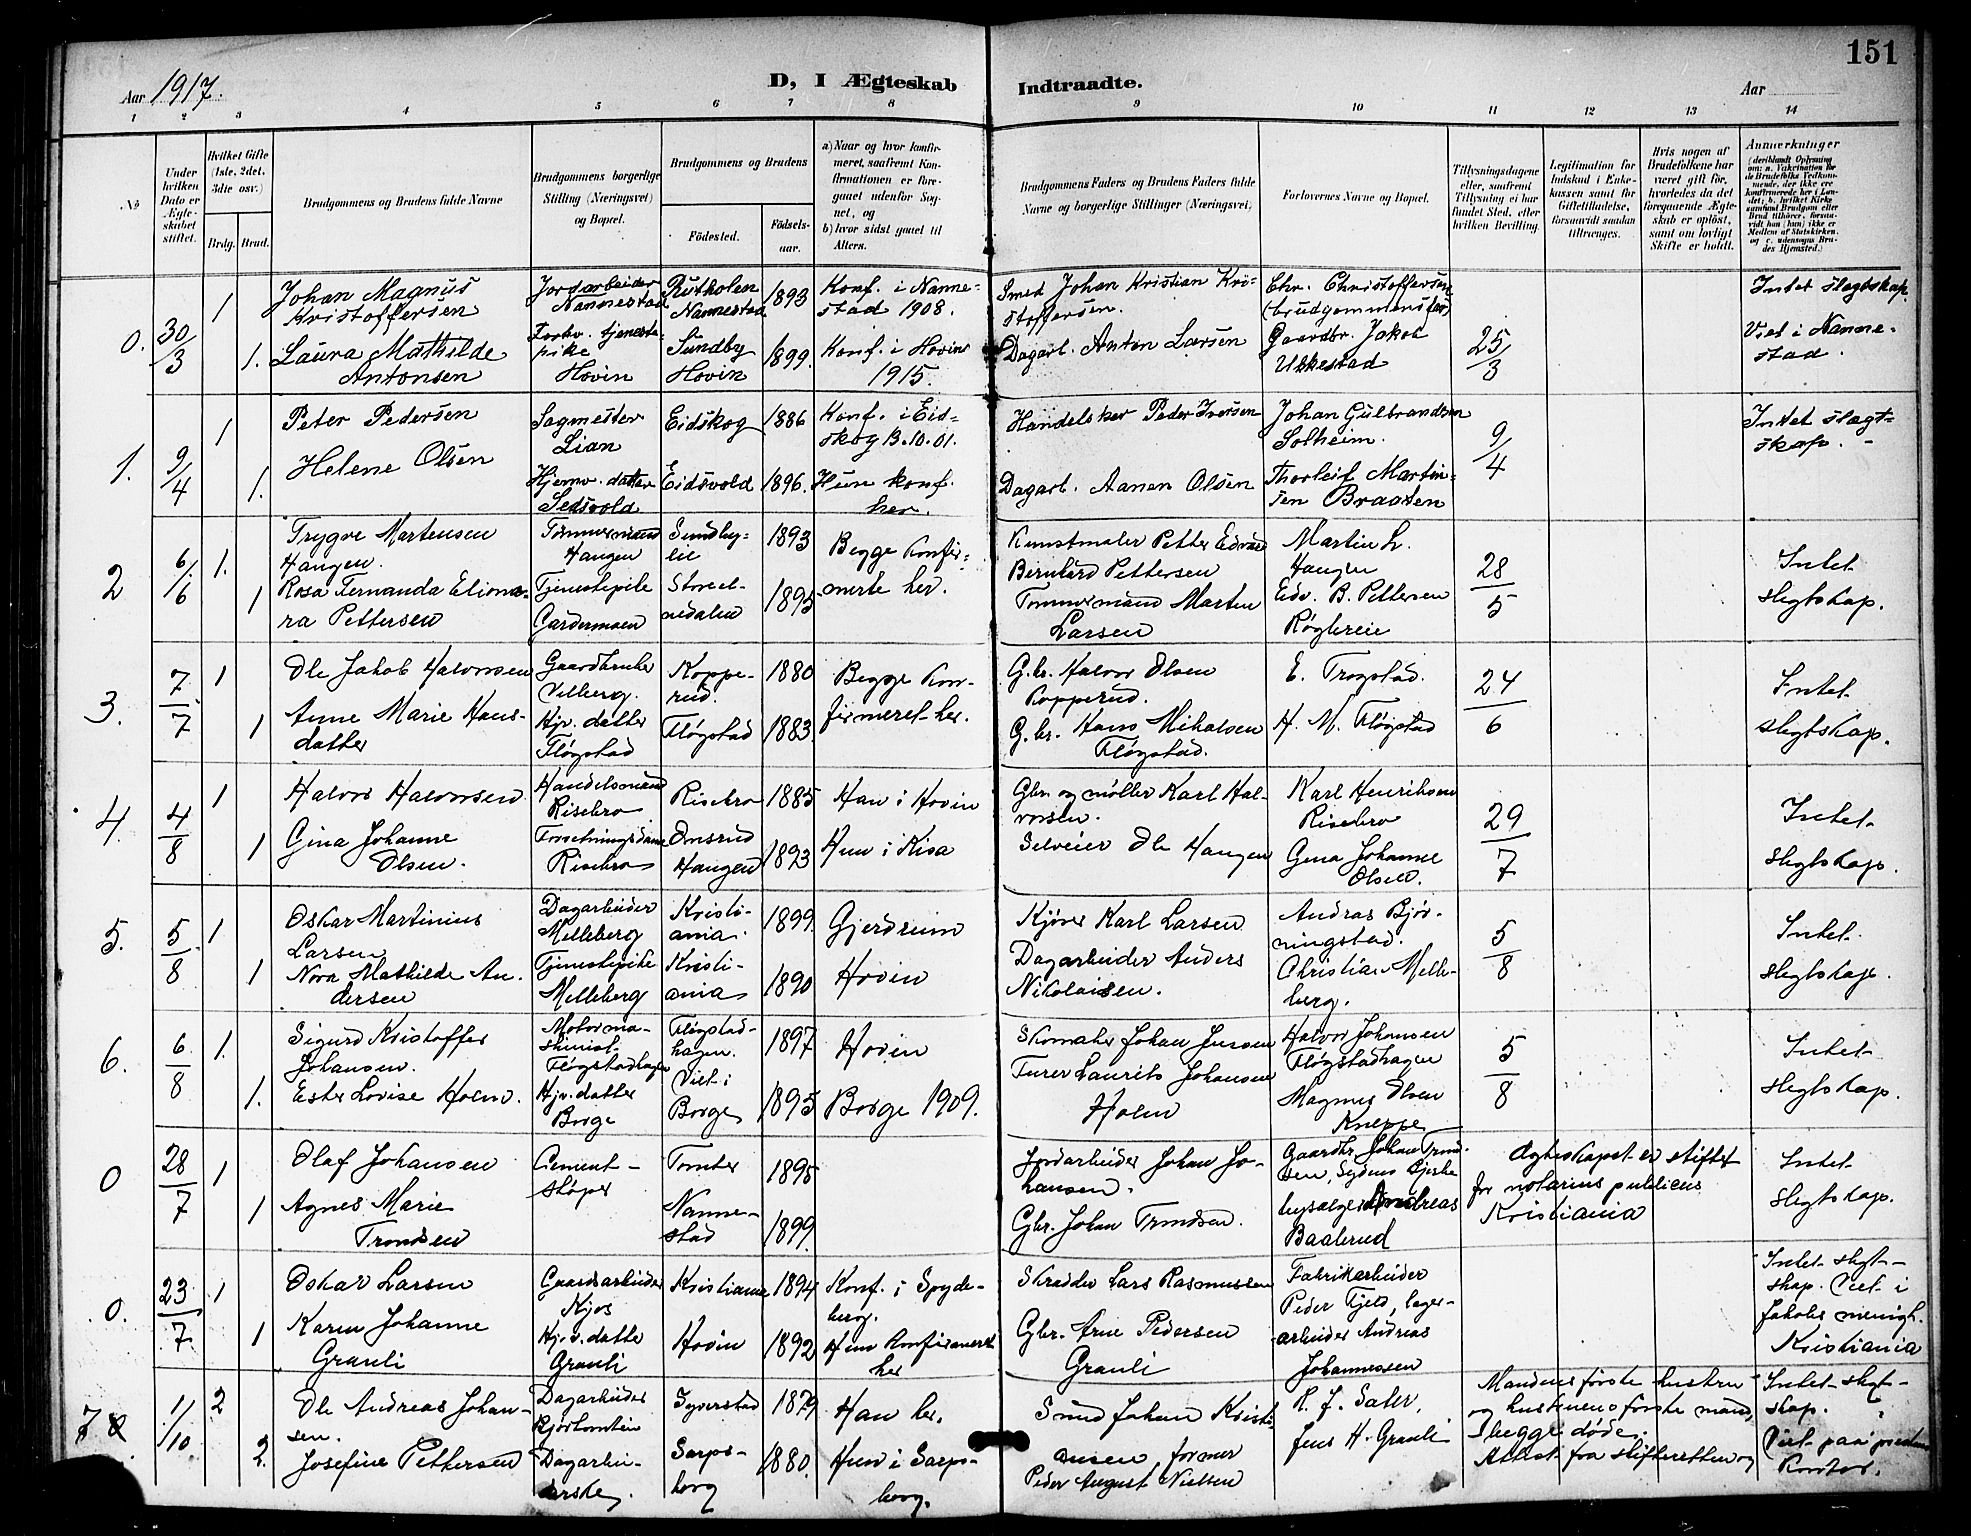 151
Aar 1917.
D, I Ægteskab Indtraadte.
Aar
1 2 3 4 5 6 7 8 9 10 11 12 13 14
No
Under
hvilken
Dato er
Ægte-
skabet
stiftet.
Hvilket Gifte
(1ste, 2det,
3die osv.)
Brdg. Brud.
Brudgommens og Brudens fulde Navne
Brudgommens borgerlige
Stilling (Næringsvei)
og Bopæl.
Brudgommens og Brudens
Fødested.
Fødsels-
aar.
a) Naar og hvor konfir-
meret, saafremt Kon-
firmationen er fore-
gaaet udenfor Sog-
net, og
b) hvor sidst gaaet til
Alters.
Brudgommens Faders og Brudens Faders fulde
Navne og borgerlige Stillinger (Næringsvei)
Forlovernes Navne og Bopæl.
Tillysningsdagene
eller, saafremt
Tillysning ei har
fundet Sted, efter
hvilken Bevilling.
Legitimation for
Indskud i Enke-
kassen samt for
Giftetilladelse,
forsaavidt saadan
tiltrænges.
Hvis nogen af
Brudefolkene har
været gift før,
hvorledes da det
foregaaende Ægte-
skab er opløst,
samt om lovligt
Skifte er holdt.
Anmerkninger
0. 30/3 1 1.
Johan Magnus
Kristoffersen
Laura Mathilde
Antonsen
Jordarbeider
Nannestad
Forhv. tjeneste-
pike
Hovin
Nannestad
Sundby
Hovin
1893
1899.
Konf. i Nanne-
stad 1908.
Konf. i Hovin
1915.
Smed Johan Kristian Kri-
stoffersen.
Dagarb. Anton Larsen
Chr. Christoffersen
(brudgommens far)
Gaardbr. Jakob
Ukkestad
25/3
Intet slegtskap.
Viet i Nanne-
stad.
1. 9/4 1 1.
Peter Pedersen
Helene Olsen
Sagmester
Lian
Hjemv. datter
Eidskog
Eidsvold
1886
1896.
Konf. i Eid-
skog 13.10.01.
Hun konf.
her.
Peder Iversen
Dagarb. Aanen Olsen
Johan Gulbrandsen
Solheim.
Thorleif Martin-
sen Braaten
9/4
Intet slægt-
skap.
2 6/6 1. 1
Trygve Martensen
Haugen.
Rosa Fernanda Eliono-
ra Pettersen
Tømmermand
Haugen
Tjenestepike
Gardermoen
Sundby-
eie
1893
1895
Begge konfir-
merte her.
Kunstmaler Petter Edvard
Bernhard Pettersen
Tømmermand Marten
Larsen
Martin L.
Haugen
Edv. B. Pettersen
28/5
Intet
slegtskap.
3. 7/7 1 1
Ole Jakob Halvorsen
Anne Marie Hans-
datter
Gaardbruker
Velberg.
Hjv. datter
Fløgstad
Koppe-
rud.
Fløgstad
1880
1883.
Begge kon-
firmeret her.
G.br. Halvor Olsen
Kopperud.
G.br. Hans Mikalsen
Fløgstad.
E. Trogstad.
H. M. Fløgstad
24/6
Intet
slegtskap.
4. 4/8 1 1
Halvor Halvorsen
Gina Johanne
Olsen.
Handelsmand
Risebro
Forretningsdame
Risebro
Risebro
Onsrud
Haugen
1885
1893
Han i Hovin
Hun i Kisa
Gbr. og møller Karl Hal-
vorsen.
Selveier Ole Haugen
Karl Henriksen
Risebro
Gina Johanne
Olsen.
29/7
Intet
slegtskap.
5. 5/8 1 1
Oskar Martinius
Larsen
Nora Mathilde An-
dersen
Dagarbeider
Melleberg
Tjenestepike
Melleberg
Kristi-
ania.
Kristi-
ania
1899.
1890
Gjerdrum
Hovin
Kjører Karl Larsen
Dagarbeider Anders
Nikolaisen.
Andras Bjør-
ningstad.
Christian Melle-
berg.
5/8
Intet
slegtskap.
6. 6/8 1. 1.
Sigurd Kristoffer
Johansen.
Ester Lovise Holm.
Motorma-
skinist
Fløgstadhagen
Hjv. datter
Borge
Fløgstad-
hagen.
Viet i
Borge
1897
1895
Hovin
Borge 1909.
Skomaker Johan Jensen
Furer Laurits Johansen
Holm
Halvor Johansen
Fløgstadhagen
Magnus Olsen
Kneppe
5/8
Intet
slegtskap.
0 28/7 1 1
Olaf Johansen
Agnes Marie
Trondsen
Cement-
støper
Tomter
Nanne-
stad
1895
1899.
Jordarbeider Johan Jo-
hansen.
Gbr. Johan Trondsen.
Gaardbr. Johan Trond-
Andreas
Baalerud
Ægteskapet er stiftet
for notarius publicus
Kristiania
Intet
slegtskap.
0. 23/7 1 1
Oskar Larsen
Karen Johanne
Grauli
Gaardsarbeider
Kjos
Hjv. datter
Grauli
Kristiania
Hovin
1894
1892
Konf. i Spyde-
berg.
Hun konfirmeret
her
Skrædder Lars Rasmussen
Gbr. Arne Pedersen
Grauli
Fabrikarbeider
Peder Fjeld, lager-
arbeider Andreas
Johannessen
Intet slegt-
skap. Viet i
Jakobs menigh.
Kristiania
7 1/10 2 2.
Ole Andreas Johan-
sen.
Josefine Pettersen
Dagarbeider
Dagarbei-
derske.
Sarps-
borg
1879
1880.
Han her.
Hun i Sarps-
borg.
Smed Johan Kristi-
ansen, former
Peder August Nielsen
Jens H. Grauli
Mandens første hustru
og hustruens første mand,
begge døde.
Attest fra skifteretten
Intet slegt-
skap.
Viet paa prestens
kontor.